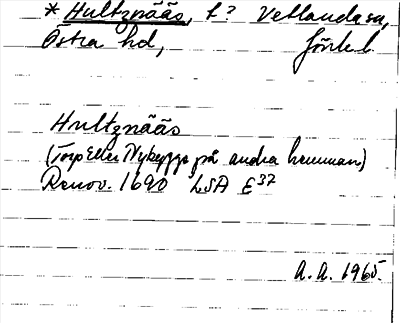 * Hultznääs, t? Vetlanda sn,
Östra hd, Jönk. l.
Hultznääs
(Torp Eller Nybygge på andra hemman)
Renov. 1690 LSA E 37
A. A. 1965.